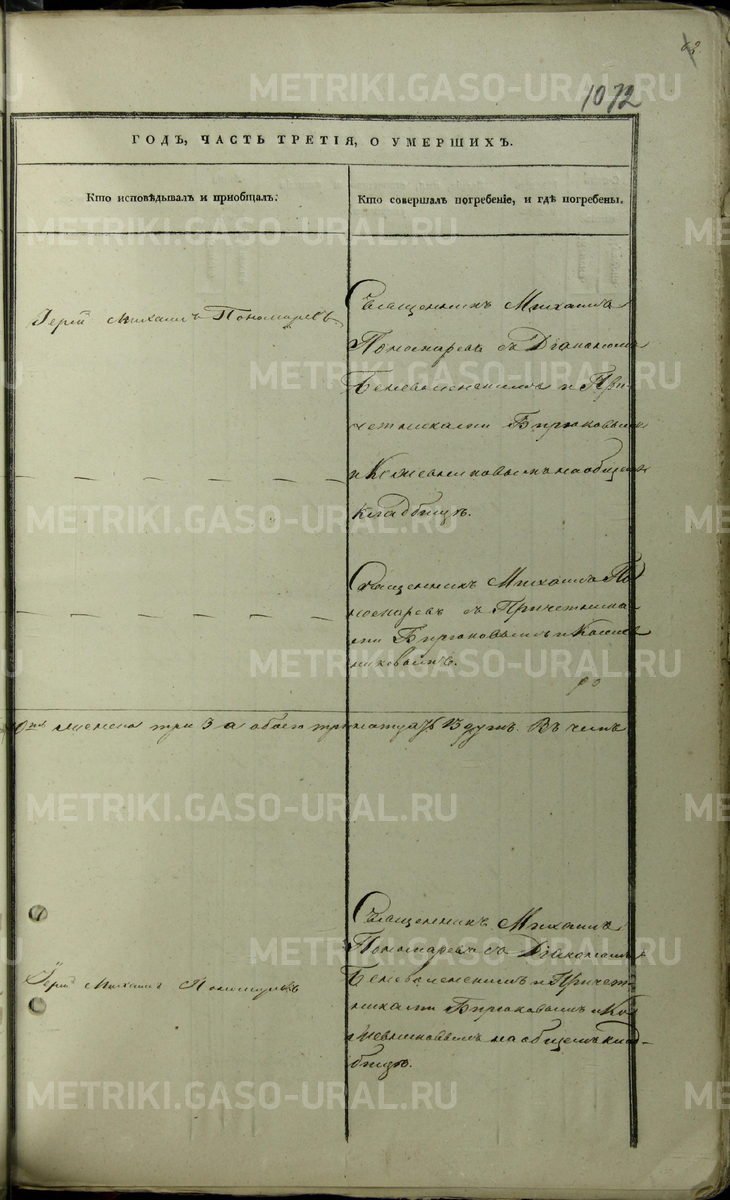 1072
ГОДЪ, ЧАСТЬ ТРЕТІЯ, О УМЕРШИХЪ.
Кто исповѣдывалъ и пріобщалъ:
Кто совершалъ погребеніе, и гдѣ погребены.
Іерей Михаилъ Пономаревъ
Священникъ Михаилъ
Пономаревъ съ Діакономъ
и При-
четниками Бирюковымъ
и Кожевниковымъ на общемъ
кладбищѣ.
Священникъ Михаилъ По
номаревъ съ Причетника
ми Бирюковымъ и Кожев
никовымъ.
женска три 3 а обоего тринатцать 13 душъ. Въ чемъ
Священникъ Михаилъ
Пономаревъ съ Діакономъ
и Причет-
никами Бирюковымъ и Ко
жевниковымъ на общемъ клад-
бищѣ.
Іерей Михаилъ Пономаревъ
METRIKI.GASO-URAL.RU